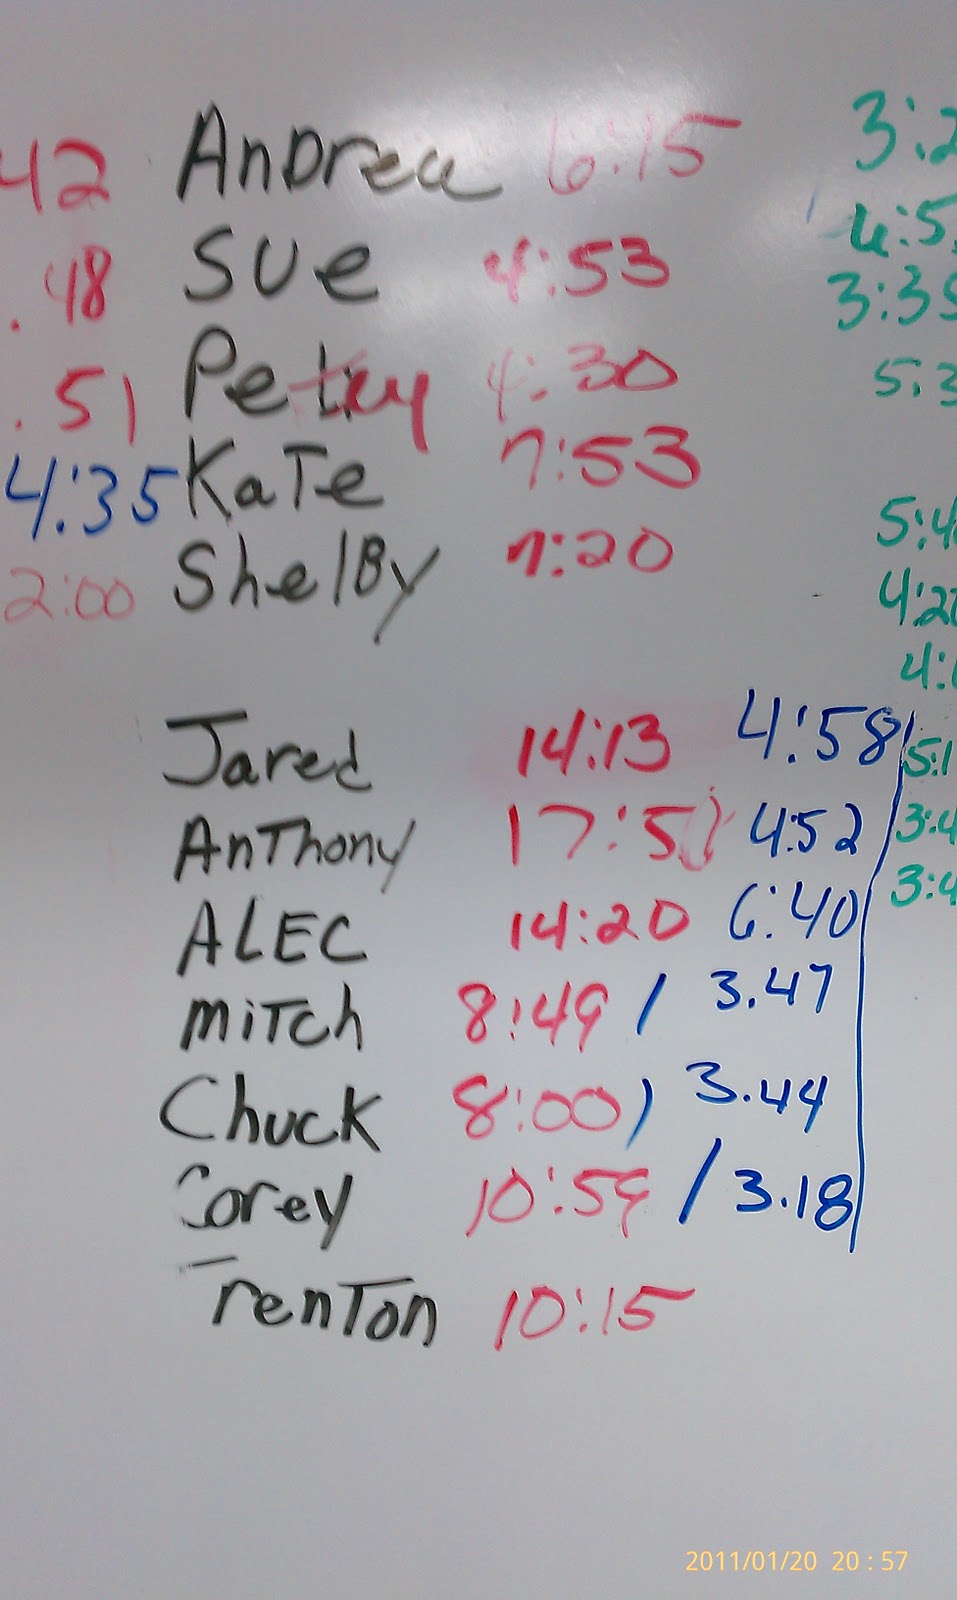 42 Andrea 6:15 3:2
.48 Sue 4:53 4:5
3:35
.51 Petey 4:30 5:3
4:35 Kate 7:53 5:4
2:00 Shelby 7:20 4:20
4:
Jared 14:13 4:58 5:1
Anthony 17:51 4:52 3:4
ALEC 14:20 6:40 3:4
mitch 8:49 / 3.47
Chuck 8:00 / 3.44
Corey 10:59 / 3.18
Trenton 10:15
2011/01/20 20:57